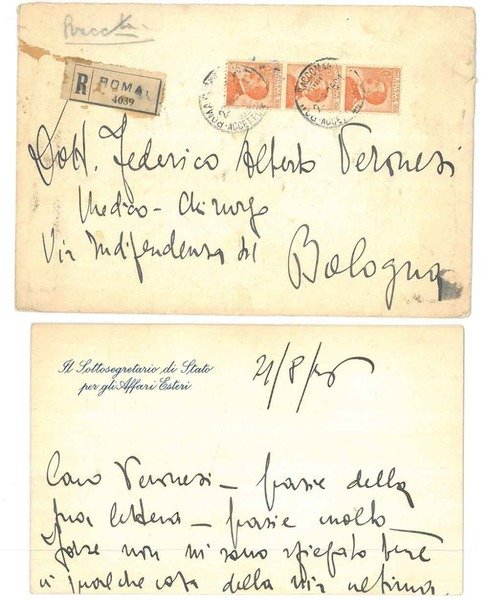 Raccta
R ROMA
4039
Dott. Federico Alberto Veronesi
Medico-Chirurgo
Via Indipendenza
Bologna
Il Sottosegretario di Stato
per gli Affari Esteri
Caro Veronesi – grazie della
tua lettera – grazie molto –
Forse non mi sono spiegato bene
in qualche cosa della mia ultima.